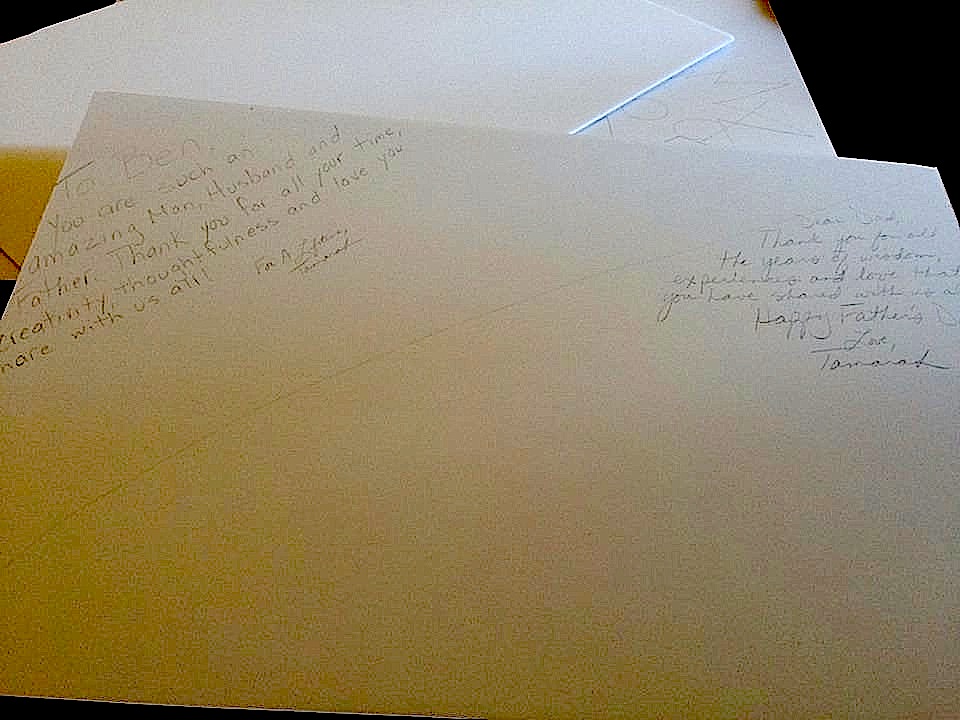 To Ben,
You are such an
amazing Man, Husband and
Father. Thank you for all your time,
creativity, thoughtfulness and love you
hare with us all!
Tamarah
Dear Dad,
Thank you for all
the years of wisdom,
experiences and love that
you have shared with us a
Happy Father's D
Love,
Tamarah